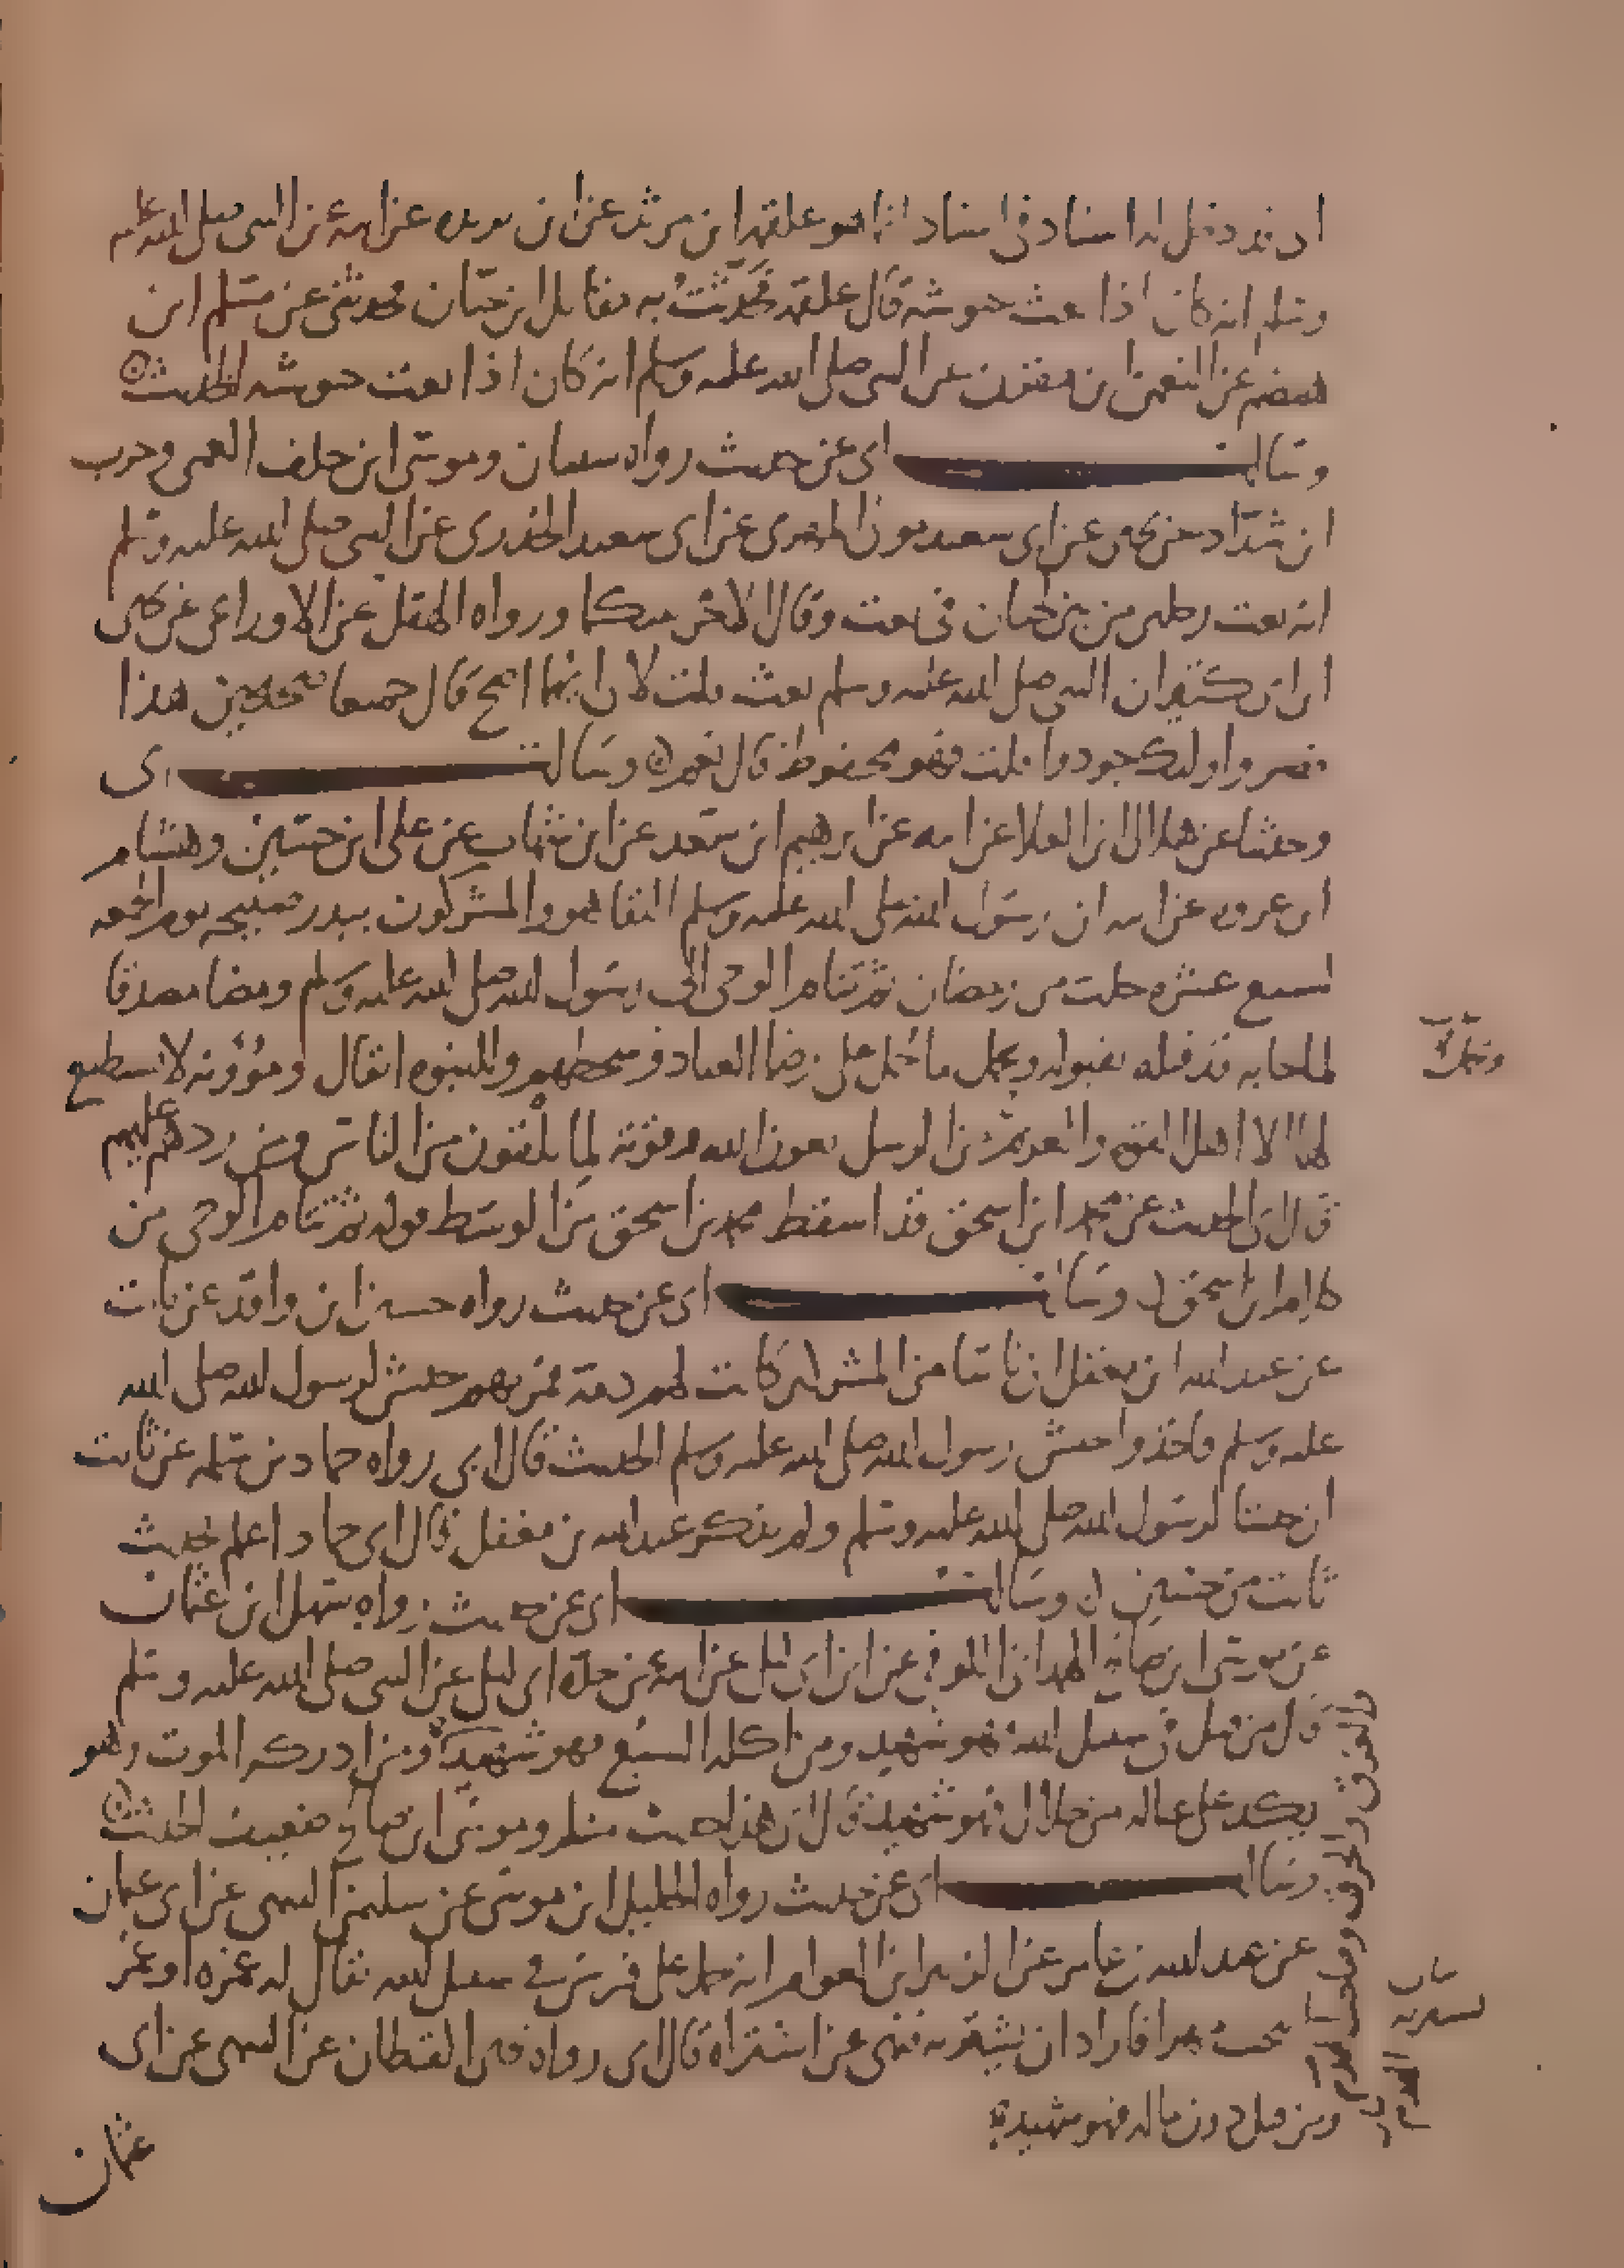 ان قد دخل له اسناد في اسناد انما هو علقمة ابن مرثد عن ابن بريده عن ابيه عن النبي صلى الله عليه
وسلم انه كان اذا بعث جيوشه قال علقمة فحدثت به مقاتل ابن حيان فحدثني عن مسلم ابن
هيضم عن النعمن ابن مقرن عن النبي صلى الله عليه وسلم انه كان اذا بعث جيوشه الحديث
وسالت ابي عن حديث رواه شيبان وموسى ابن خلف العمي وحرب
ابن شداد عن يحيى عن ابي سعيد مولى المهري عن ابي سعيد الخدري عن النبي صلى الله عليه وسلم
انه بعث رجلين من بني لحيان في بعث وقال الاخر منكما ورواه الهقل عن الاوزاعي عن يحيى
ابن ابي كثير ان النبي صلى الله عليه وسلم بعث قلت لابي ايهما اصح قال جميعا صحيحين هذا
قصر واوليك جودوا قلت فهو محفوظ قال نعم وسالت ابي
وحدثنا عن هلال ابن العلا عن ابيه عن ابرهيم ابن سعد عن ابن شهاب عن علي ابن حسين وهشام
ابن عروه عن ابيه ان رسول الله صلى الله عليه وسلم التقا هو والمشركون ببدر صبيحه يوم الجمعه
لسبع عشره خلت من رمضان ثم تتام الوحي الى رسول الله صلى الله عليه وسلم ومضا مصدقا
لما جا به قد قبله بقبوله ويحمل ما حمل على رضا العباد وسخطهم وللنبوه اثقال ومؤونه لا يستطيع
لها الا اهل القوه والعزم من الرسل بعون الله وقوته لما يلقون من الناس ومن ردهم عليهم
قال ابي الحديث عن محمد ابن اسحق قد اسقط محمد بن اسحق من الوسط قوله ثم تتام الوحي من
كلام ابن اسحق وسالت ابي عن حديث رواه حسين ابن واقد عن ثابت
عن عبد الله ابن مغفل ان ناسا من المشركين كانت لهم ذمة فمر بهم جيش لرسول الله صلى الله
عليه وسلم فاخذوا جيش رسول الله صلى الله عليه وسلم الحديث قال ابي رواه حماد بن سلمه عن ثابت
ان جيشا لرسول الله صلى الله عليه وسلم ولم يذكر عبد الله بن مغفل قال ابي حماد اعلم بحديث
ثابت من حسين وسالت ابي عن حديث رواه سهل ابن عثمان
عن موسى ابن صالح الهمداني الكوفي عن ابن ابي ليلى عن ابيه عن جده ابي ليلى عن النبي صلى الله عليه وسلم
قال من قتل في سبيل الله فهو شهيد ومن اكله السبع فهو شهيد ومن ادركه الموت وهو
يكد على عياله من حلال فهو شهيد قال ابي هذا حديث منكر وموسى ابن صالح ضعيف الحديث
وسالت ابي عن حديث رواه الخليل ابن موسى عن سليمن التيمي عن ابي عثمان
عن عبد الله بن عامر عن الزبير ابن العوام انه حمل على فرس في سبيل الله يقال له غمره او غمر
تحت مهرا فاراد ان يشتريه فنهي عن اشتراه قال ابي رواه يحيى القطان عن التيمي عن ابي
ومن قتل دون ماله فهو شهيد
عثمان